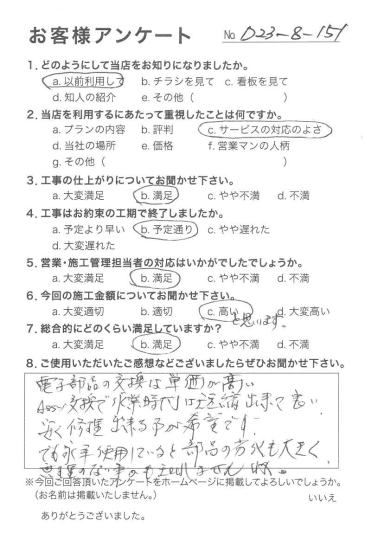 お客様アンケート No D23-8-151
1. どのようにして当店をお知りになりましたか。
a. 以前利用して b. チラシを見て c. 看板を見て
d. 知人の紹介 e. その他（ ）
2. 当店を利用するにあたって重視したことは何ですか。
a. プランの内容 b. 評判 c. サービスの対応のよさ
d. 当社の場所 e. 価格 f. 営業マンの人柄
g. その他（ ）
3. 工事の仕上がりについてお聞かせ下さい。
a. 大変満足 b. 満足 c. やや不満 d. 不満
4. 工事はお約束の工期で終了しましたか。
a. 予定より早い b. 予定通り c. やや遅れた
d. 大変遅れた
5. 営業・施工管理担当者の対応はいかがでしたでしょうか。
a. 大変満足 b. 満足 c. やや不満 d. 不満
6. 今回の施工金額についてお聞かせ下さい。
a. 大変適切 b. 適切 c. 高い d. 大変高い
と思います。
7. 総合的にどのくらい満足していますか？
a. 大変満足 b. 満足 c. やや不満 d. 不満
8. ご使用いただいたご感想などございましたらぜひお聞かせ下さい。
電子部品の交換は単価が高い
Assy交換で作業時間は短縮出来て良い
安く修理出来る事が希望です
でも永年使用していると部品の劣化も大きく
のない事かも知れませんね。
※今回ご回答頂いたアンケートをホームページに掲載してよろしいでしょうか。
（お名前は掲載いたしません。） いいえ
ありがとうございました。